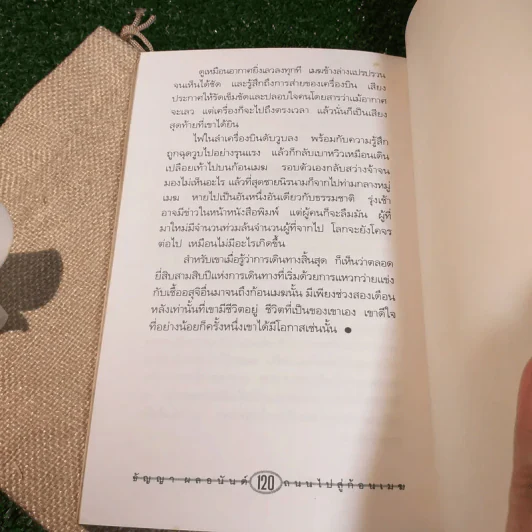 ดูเหมือนอากาศยิ่งเลวลงทุกที เมฆข้างล่างแปรปรวน
จนเห็นได้ชัด และรู้สึกถึงการส่ายของเครื่องบิน เสียง
ประกาศให้รัดเข็มขัดและปลอบใจคนโดยสารว่าแม้อากาศ
จะเลว แต่เครื่องก็จะไปถึงตรงเวลา แล้วนั่นก็เป็นเสียง
สุดท้ายที่เขาได้ยิน
ไฟในลำเครื่องบินดับวูบลง พร้อมกับความรู้สึก
ถูกฉุดวูบไปอย่างรุนแรง แล้วก็กลับเบาหวิวเหมือนเดิน
เปลือยเท้าไปบนก้อนเมฆ รอบตัวเองกลับสว่างจ้าจน
มองไม่เห็นอะไร แล้วที่สุดชายนิรนามก็จากไปท่ามกลางหมู่
เมฆ หายไปเป็นอันหนึ่งอันเดียวกับธรรมชาติ รุ่งเช้า
อาจมีข่าวในหน้าหนังสือพิมพ์ แต่ผู้คนก็จะลืมมัน ผู้ที่
มาใหม่มีจำนวนท่วมล้นจำนวนผู้ที่จากไป โลกจะยังโคจร
ต่อไป เหมือนไม่มีอะไรเกิดขึ้น
สำหรับเขาเมื่อรู้ว่าการเดินทางสิ้นสุด ก็เห็นว่าตลอด
ยี่สิบสามสิบปีแห่งการเดินทางที่เริ่มด้วยการแหวกว่ายแข่ง
กับเชื้ออสุจิอื่นมาจนถึงก้อนเมฆนั้น มีเพียงช่วงสองเดือน
หลังเท่านั้นที่เขามีชีวิตอยู่ ชีวิตที่เป็นของเขาเอง เขาดีใจ
ที่อย่างน้อยก็ครั้งหนึ่งเขาได้มีโอกาสเช่นนั้น ●
ธัญญา ผลอนันต์ 120 ถนนไปสู่ก้อนเมฆ